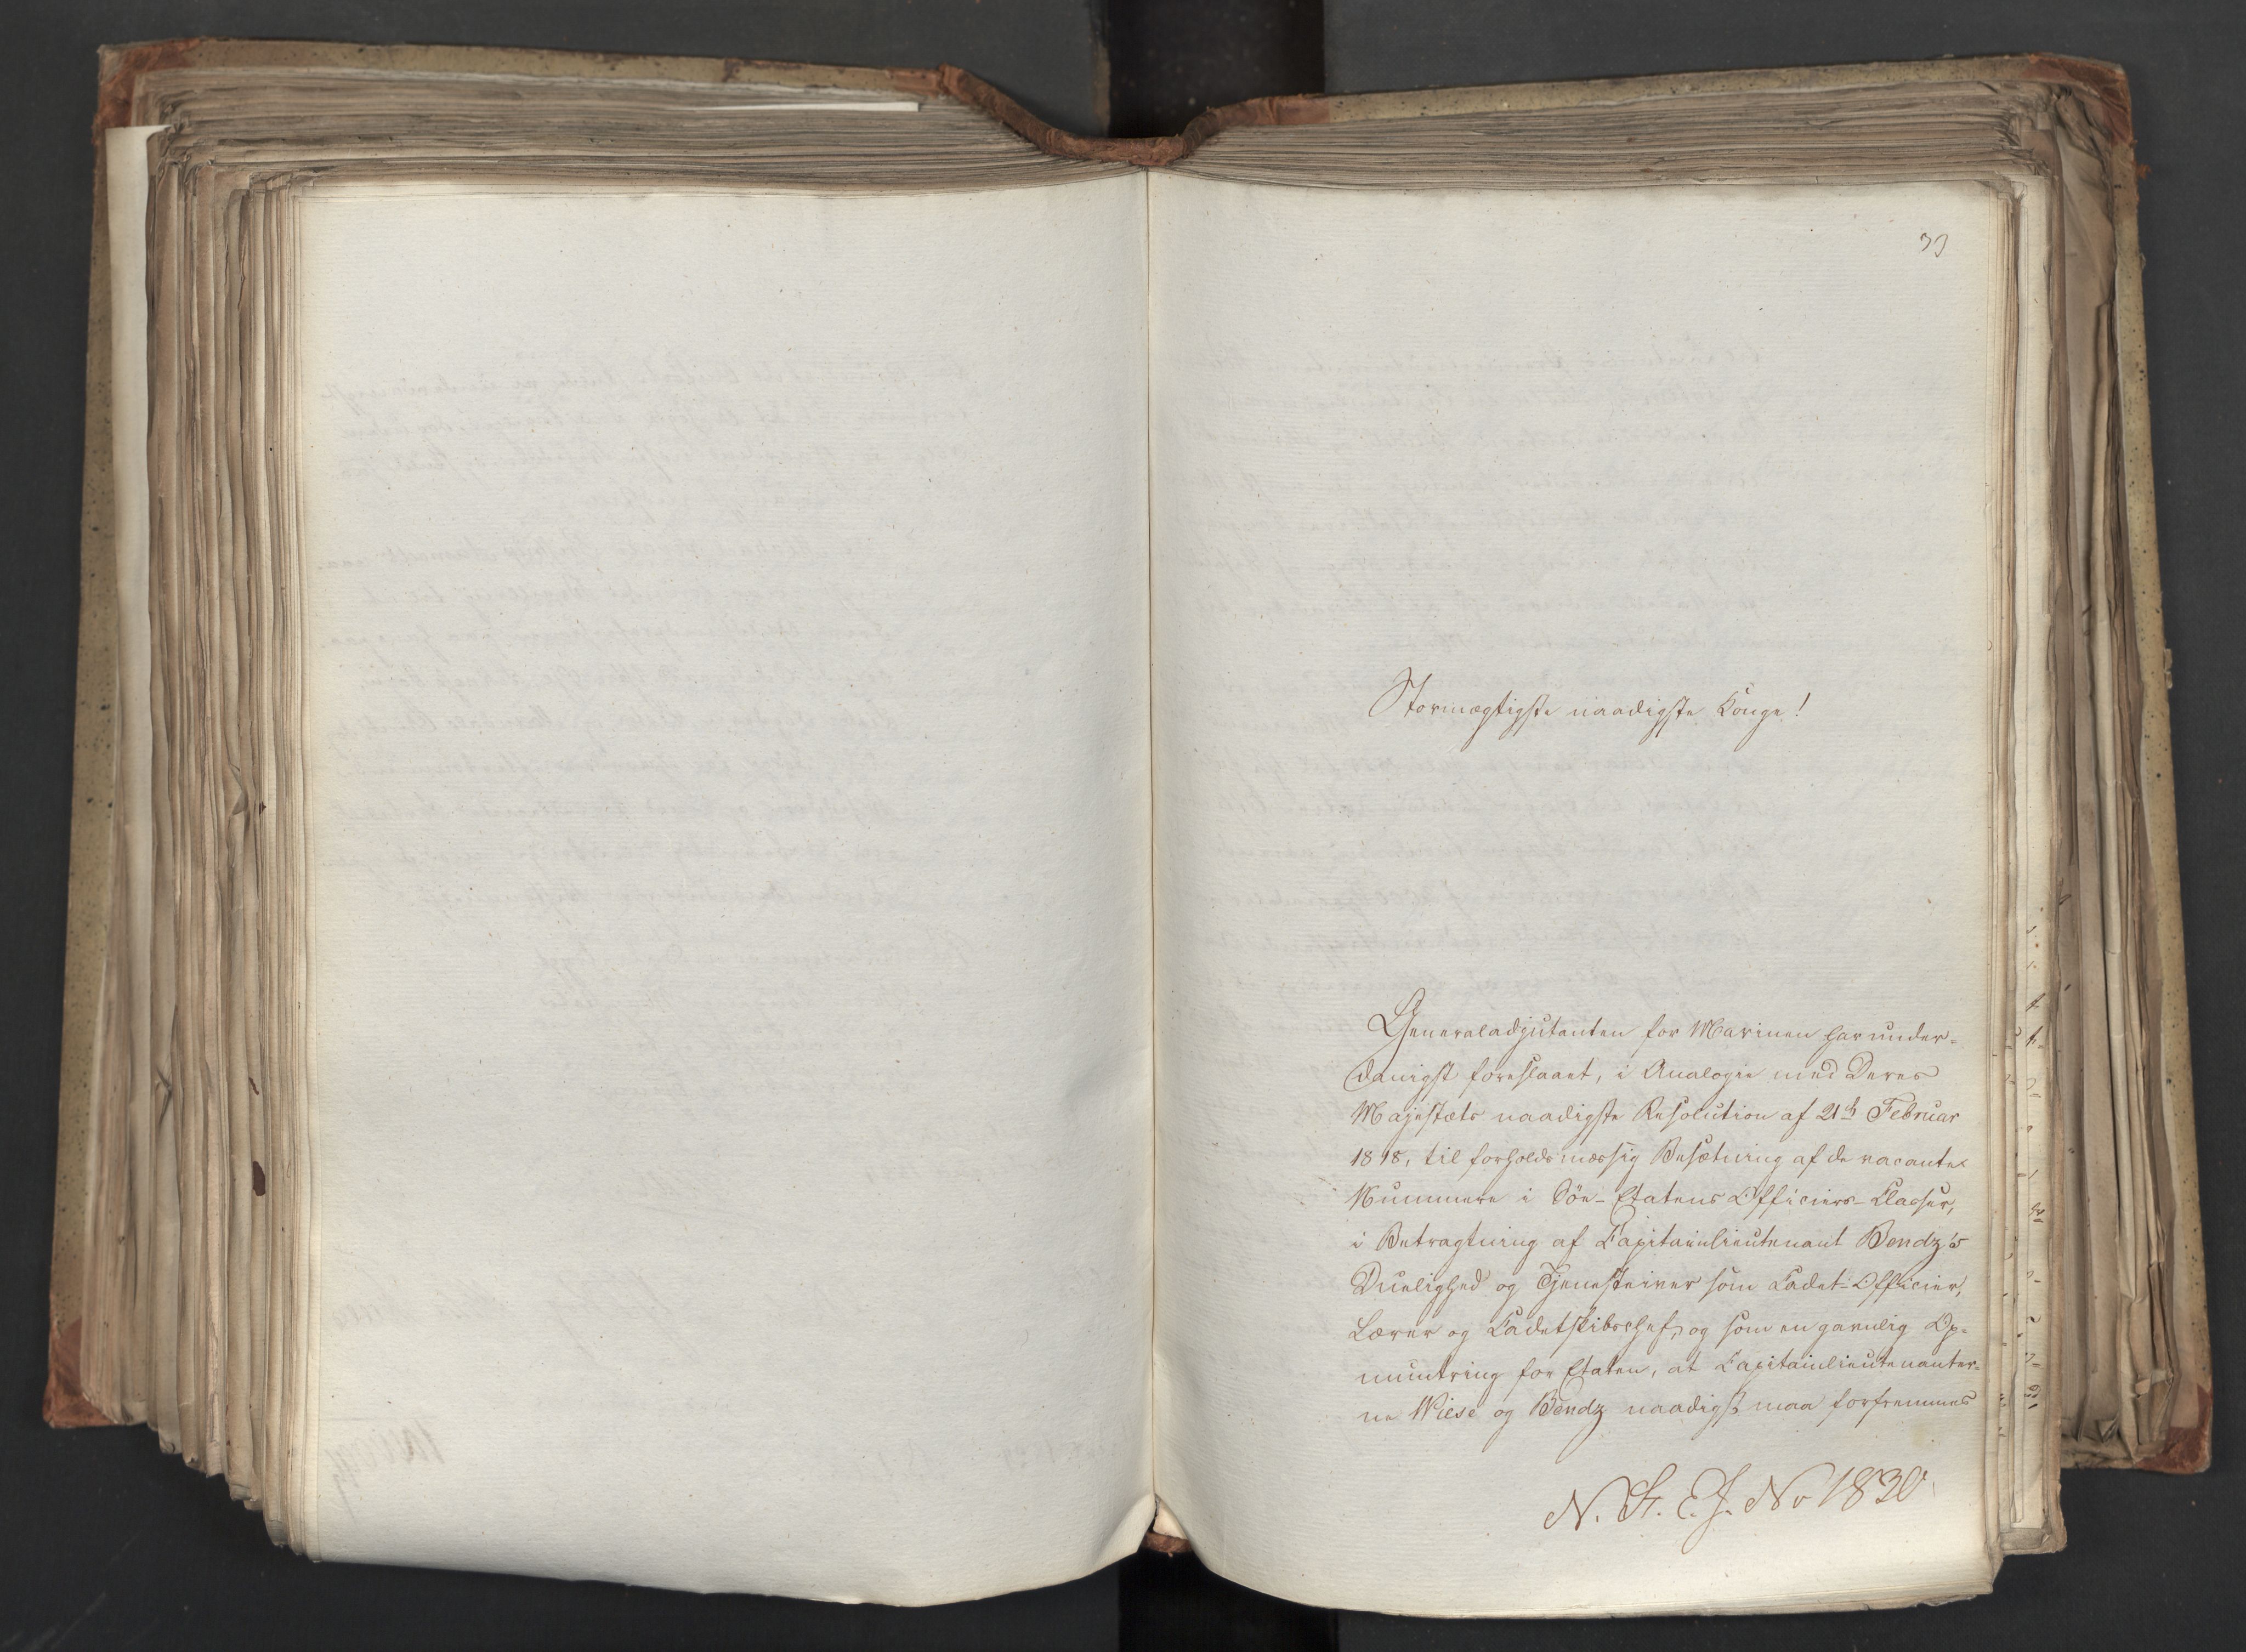 33
Stormægtigste naadigste Konge!
Generaladjutanten for Marinen har under-
danigst foreslaaet, i Analogie med Deres
Majestæts naadigste Resolution af 21de Februar
1818, til forholdsmæssig Besætning af de vacante
Nummere i Söe-Etatens Officiers-Classer,
i Betragtning af Capitainlieutenant Bendz's
Duelighed og Tjenesteiver som Cadet-Officier,
Lærer og Cadetskibschef, og som en gavnlig Op-
muntring for Etaten, at Capitainlieutenanter-
ne Wiese og Bendz naadigst maa forfremmes
N. F. E. J. No 1830